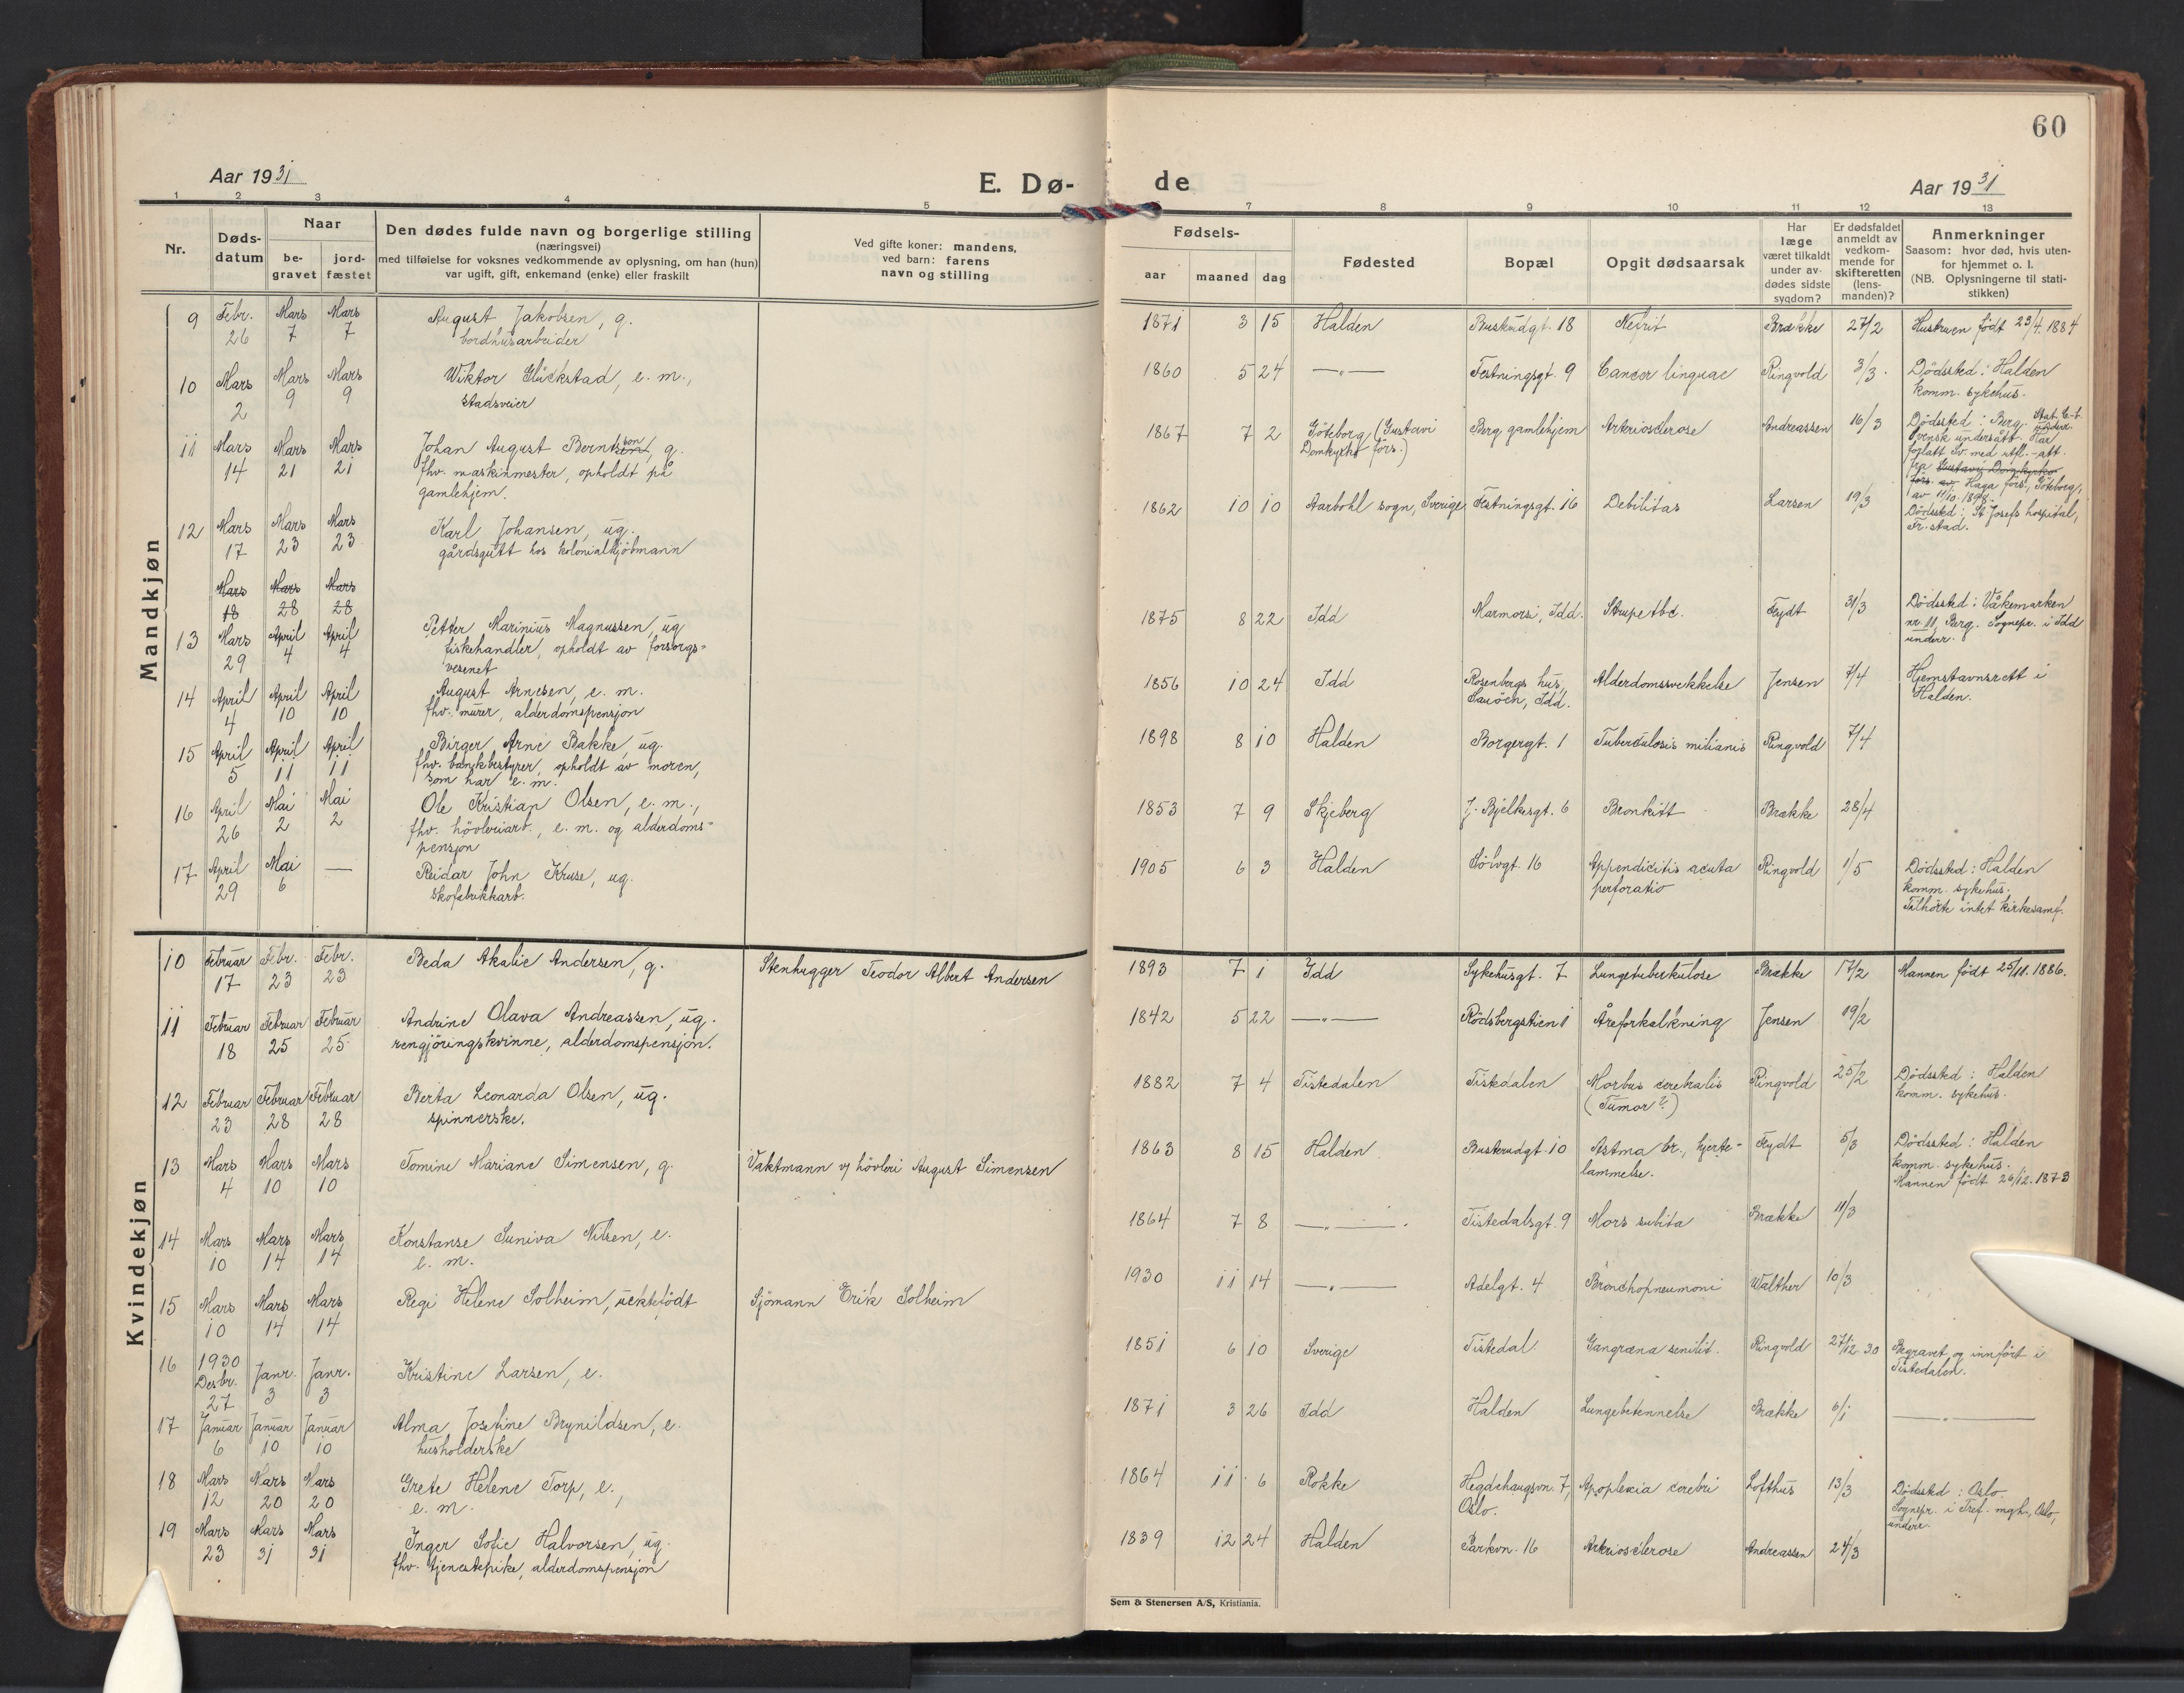 60
Aar 1931
E. Dø-
de
Aar 1931
1 2 3 4 5 7 8 9 10 11 12 13
Nr.
Døds-
datum
Naar
be-
gravet
jord-
fæstet
Den dødes fulde navn og borgerlige stilling
(næringsvei)
med tilføielse for voksnes vedkommende av oplysning, om han (hun)
var ugift, gift, enkemand (enke) eller fraskilt
Ved gifte koner: mandens,
ved barn: farens
navn og stilling
Fødsels-
aar maaned dag
Fødested
Bopæl
Opgit dødsaarsak
Har
læge
været tilkaldt
under av-
dødes sidste
sygdom?
Er dødsfaldet
anmeldt av
vedkom-
mende for
skifteretten
(lens-
manden)?
Anmerkninger
Saasom: hvor død, hvis uten-
for hjemmet o. l.
(NB. Oplysningerne til stati-
stikken)
Mandkjøn
9 Febr. Mars Mars August Jakobsen, g. 1871 3 15 Halden Buskudgt. 18 Nefrit Brække 27/2 Hustruen født 23/4. 1884
26 7 7 bordhusarbeider
10 Mars Mars Mars Wiktor Glückstad, e. m., 1860 5 24 —"— Festningsgt. 9 Cancer linguae Ringvold 3/3. Dödssted: Halden
2 9 9 stadsveier komm. sykehus.
11 Mars Mars Mars Johan August Berntsson, g. 1867 7 2 Göteborg (Gustavi Berg gamlehjem Arteriosclerose Andreassen 16/3 Dödssted: Berg. Stat. C-b.
14 21 21 fhv. maskinmester, opholdt på Domkyrko förs.) Svensk undersått. Har underr.
gamlehjem. forlatt Sv. med utfl.-att.
fra Gustavi Domkyrko
förs. av Haga förs., Göteborg,
av 11/10. 1898.
12 Mars Mars Mars Karl Johansen, ug. 1862 10 10 Aarbohl sogn, Sverige Festningsgt. 16 Debilitas Larsen 19/3 Dödssted: St Josefs hospital,
17 23 23 gårdsgutt hos kolonialkjöbmann Fr.stad.
Mars Mars Mars
18 28 28
13 Mars April April Petter Marinius Magnussen, ug 1875 8 22 Idd Marmorsi, Idd. Strupetbc. Fydt 31/3 Dödssted: Våkemarken
29 4 4 fiskehandler, opholdt av forsorgs= nr. 11, Berg. Sognepr. i Idd
vesenet underr.
14 April April April August Arnesen, e. m. 1856 10 24 Idd Rosenbergs hus, Alderdomssvekkelse Jensen 7/4 Hjemstavnsrett i
4 10 10 fhv. murer, alderdomspensjon Sauöen, Idd. Halden.
15 April April April Birger Arne Bakke, ug. 1898 8 10 Halden Borgergt. 1 Tuberculosis miliaris Ringvold 7/4
5 11 11 fhv. bankbestyrer, opholdt av moren,
som har e. m.
16 April Mai Mai Ole Kristian Olsen, e. m., 1853 7 9 Skjeberg J. Bjelkesgt. 6 Bronkitt Brække 28/4
26 2 2 fhv. hövleriarb., e. m. og alderdoms=
pensjon
17 April Mai — Reidar John Kruse, ug. 1905 6 3 Halden Sölvgt. 16 Appendicitis acuta Ringvold 1/5 Dödssted: Halden
29 6 skofabrikkarb. perforatio komm. sykehus.
Tilhörte intet kirkesamf.
Kvindekjøn
10 Februar Febr. Febr. Beda Akalie Andersen, g. Stenhugger Teodor Albert Andersen 1893 7 1 Idd Sykehusgt. 7 Lungetuberkulose Brække 17/2 Mannen født 25/11. 1886.
17 23 23
11 Februar Februar Februar Andrine Olava Andreassen, ug. 1842 5 22 —"— Rödsbergstien 1 Åreforkalkning Jensen 19/2
18 25 25 rengjöringskvinne, alderdomspensjon.
12 Februar Februar Februar Berta Leonarda Olsen, ug. 1882 7 4 Tistedalen Tistedalen Morbus cerebralis Ringvold 25/2 Dödssted: Halden
23 28 28 spinnerske. (Tumor?) komm. sykehus.
13 Mars Mars Mars Tomine Mariane Simensen, g. Vaktmann v/ hövleri August Simensen 1863 8 15 Halden Buskrudgt. 10 Astma br., hjerte- Fydt 5/3 Dödssted: Halden
4 10 10 lammelse. komm. sykehus.
Mannen født 26/12. 1873
14 Mars Mars Mars Konstanse Suniva Nilsen, e. 1864 7 8 —"— Tistedalsgt. 9 Mors subita Brække 11/3
10 14 14 e. m.
15 Mars Mars Mars Regi Helene Solheim, uektefödt Sjömann Erik Solheim 1930 11 14 —"— Adelgt. 4 Bronchopneumoni Walther 10/3
10 14 14
16 1930 Janr. Janr. Kristine Larsen, e. 1851 6 10 Sverige Tistedal Gangræna senilit. Ringvold 27/12 30 Begravet og innfört i
Desbr. 3 3 Tistedalen.
27
17 Januar Januar Januar Alma Josefine Brynildsen, e. 1871 3 26 Idd Halden Lungebetennelse Brække 6/1 —"—
6 10 10 husholderske
18 Mars Mars Mars Grete Helene Torp, e., 1864 11 6 Rokke Hegdehaugsvn. 7, Apoplexia cerebri Lofthus 13/3 Dödssted: Oslo.
12 20 20 e. m. Oslo. Sognepr. i Tref. mgh., Oslo,
underr.
19 Mars Mars Mars Inger Sofie Halvorsen, ug. 1839 12 24 Halden Parkvn. 16 Arteriosclerose Andreassen 24/3
23 31 31 fhv. tjenestepike, alderdomspensjon
Sem & Stenersen A/S, Kristiania.